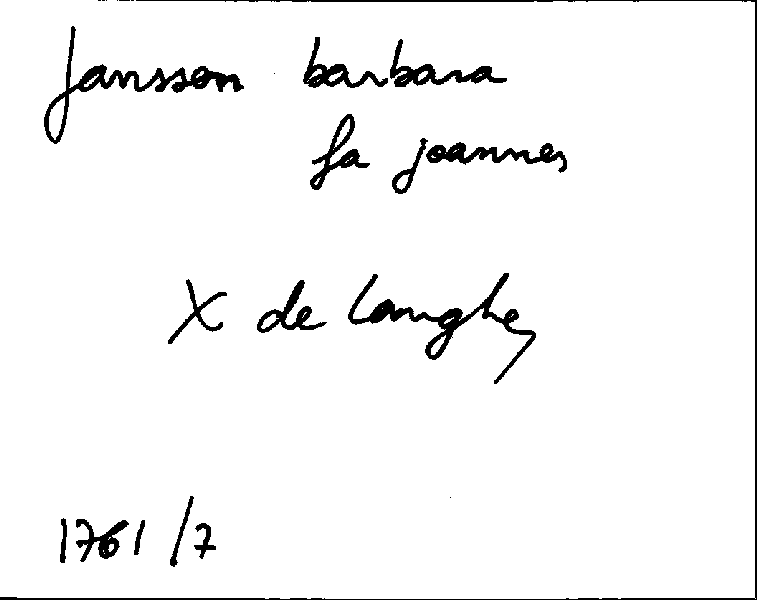 Jansson barbara
fa joannes
X de Langhe,
1761/7